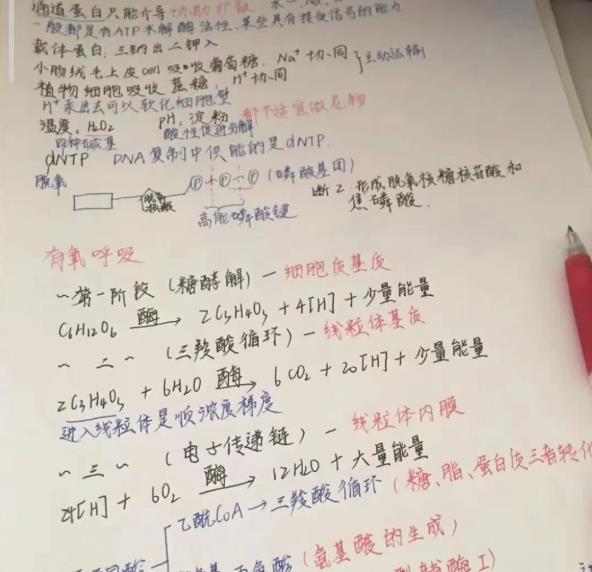 通道蛋白只能介导协助扩散 水
一般都是有ATP水解酶活性,某些具有接受信号的能力
载体蛋白:三钠出二钾入
小肠绒毛上皮cell吸收葡萄糖,Na⁺协同
植物细胞吸收蔗糖,H⁺协同 }主动运输
H⁺泵出去可以软化细胞壁
温度:H₂O₂ PH:淀粉 都不适宜做底物
酸性促进分解
四种碱基
dNTP DNA复制中供能的是dNTP.
脱氧
P+P~P (磷酸基团)
高能磷酸键
断2,形成脱氧核糖核苷酸和
焦磷酸.
有氧呼吸
~第一阶段(糖酵解)—细胞质基质
C₆H₁₂O₆ 酶→ 2C₃H₄O₃+4[H]+少量能量
~ 二 ~ (三羧酸循环)—线粒体基质
2C₃H₄O₃+6H₂O 酶→ 6CO₂+20[H]+少量能量
进入线粒体是顺浓度梯度
~ 三 ~ (电子传递链)—线粒体内膜
24[H]+6O₂ 酶→ 12H₂O+大量能量
乙酰CoA→三羧酸循环(糖、脂、蛋白质三者转化
氨酸(氨基酸的生成)
酶I)